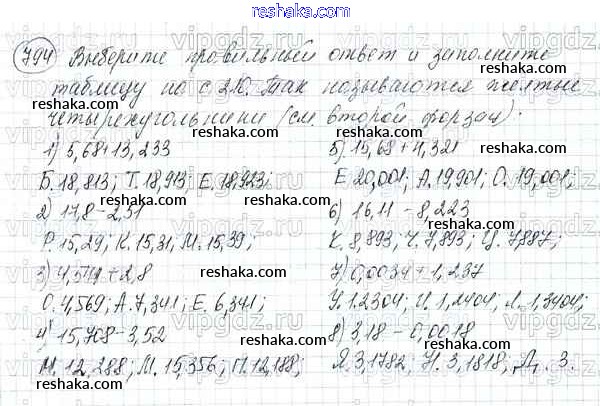 794 Выберите правильный ответ и заполните
таблицу на с 210. Так называются желтые
четырехугольники (см. второй форзац).
1) 5,68+13,233
Б. 18,813; Т. 18,913; Е. 18,923;
2) 17,8-2,51
Р. 15,29; К. 15,31; М. 15,39;
3) 4,541+2,8
О. 4,569; А. 7,341; Е. 6,341;
4) 15,708-3,52
М. 12,288; М. 15,356; П. 12,188;
5) 15,68+4,321
Е 20,001; А. 19,901; О. 19,001;
6) 16,11-8,223
К. 8,893; Ч. 7,893; Ц. 7,887;
7) 0,0034+1,237
У. 1.2304; И. 1,2404; Л. 1,3404;
8) 3,18-0,0018
Я. 3,1782; Н. 3,1818; Д. 3.
reshaka.com
reshaka.com
reshaka.com
reshaka.com
reshaka.com
reshaka.com
reshaka.com
reshaka.com
reshaka.com
reshaka.com
reshaka.com
vipgdz.ru
vipgdz.ru
vipgdz.ru